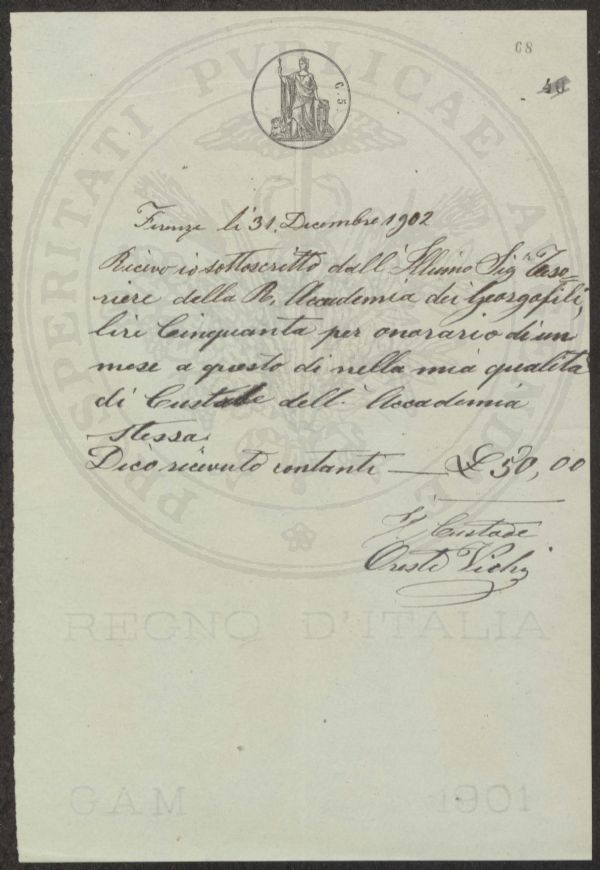 68
40
C. 5.
PROSPERITATI PVBLICAE
Firenze li 31. Decembre 1902
Ricevo io sottoscritto dall' Illmo Sigr Teso=
riere della R. Accademia dei Georgofili,
lire Cinquanta per onorario di un
mese a questo dì nella mia qualità
di Custode dell' Accademia
stessa.
Dico ricevuto contanti — £ 50,00
Il Custode
Oreste Vichi
REGNO D'ITALIA
GAM 1901